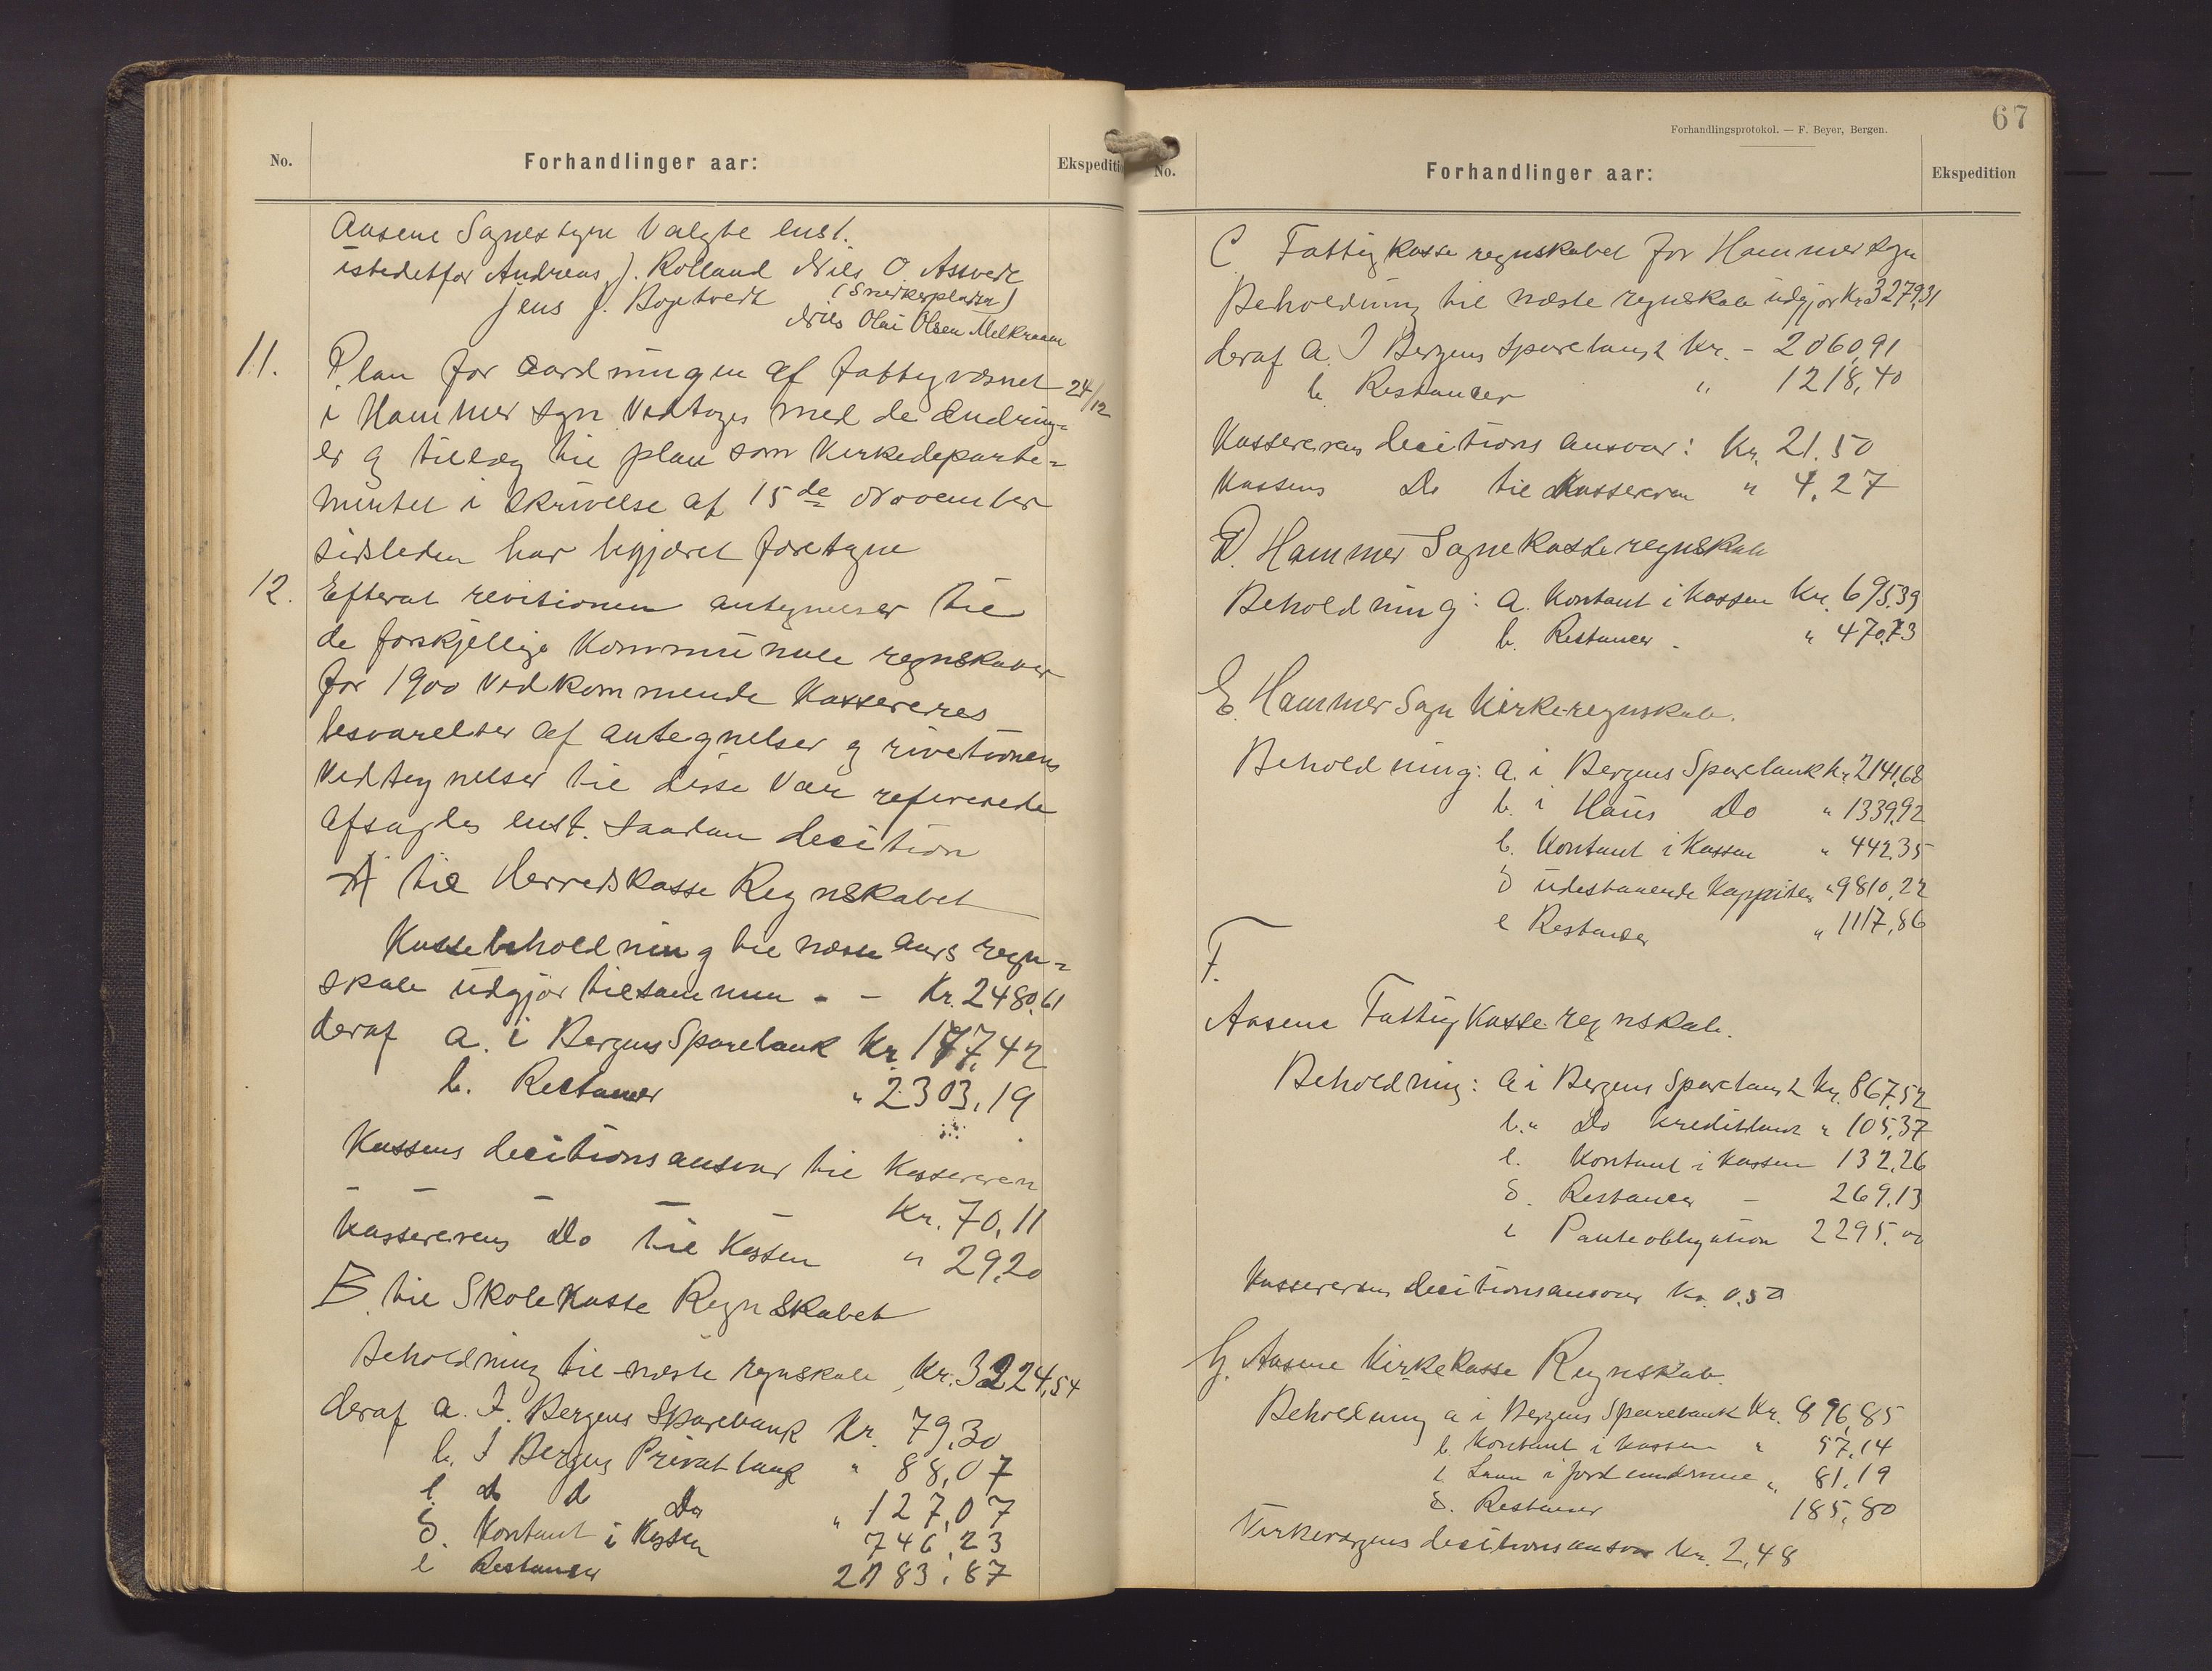 No.
Forhandlinger aar:
Ekspediti
Aasene Sognestyre valgte enst.
istedetfor Andreas J. Rolland Nils O. Assvedt
(Snedkerpladsen)
Jens J. Bogetvedt
Nils Olai Olsen Melkraaen
11. Plan for oordningen af fattigvæsnet 24/12
i Hammer sogn vedtoges med de ændring=
er og tillæg til plan som Kirkedeparte=
mentet i skrivelse af 15de November
sidsleden har begjæret foretagne
12. Efterat revitionen antegnelser til
de forskjellige Kommunale regnskaber
for 1900 vedkommende Kassereres
besvarelser af antegnelser og rivetionens
Vedtegnelser til disse var refererede
afsagdes enst. saadan decition
A til Herredskasse Regnskabet
Kassebeholdning til næste aars regn=
skab udgjør tilsammen - - Kr. 2480,61
deraf a. i Bergens Sparebank Kr. 177,42
b. Restancer " 2303,19
Kassens decitionsansvar til Kassereren
Kr. 70,11
Kassererens Do til Kassen " 29,20
B. til Skolekasse Regnskabet
Beholdning til næste regnskab, Kr. 3224,54
deraf a. I. Bergens Sparebank Kr. 79,30
b. I Bergens Privatbank " 88,07
c. do do Do " 127,07
d. Kontant i Kassen 746,23
e Restancer 2183,87
67
Forhandlingsprotokol. — F. Beyer, Bergen.
No.
Forhandlinger aar:
Ekspedition
C. Fattigkasse regnskabet for Hammer sogn
Beholdning til næste regnskab udgjør Kr. 3279,31
deraf a. I Bergens Sparebank Kr. - 2060,91
b. Restancer " 1218,40
Kassererens decitions ansvar: Kr. 21.50
Kassens Do til Kassereren " 4,27
D. Hammer Sognekasseregnskab
Beholdning: a. Kontant i Kassen Kr. 695,39
b. Restancer - " 470,73
E. Hammer Sogn Kirkeregnskab.
Beholdning: a. i Bergens Sparebank Kr. 2141,68
b. i Haus Do " 1339,92
c. Kontant i Kassen " 442,35
d udestaaende Kappitaler " 9810,22
e Restancer " 1117,86
F.
Aasene Fattigkasse regnskab.
Beholdning: a i Bergens Sparebank Kr. 867,52
b. " Do Kreditbank " 105,37
c. Kontant i Kassen 132,26
d. Restancer - 269,13
e Panteobligation 2295,00
Kassererens decitionsansvar Kr. 0,50
G. Aasene Kirkekasse Regnskab.
Beholdning a i Bergens Sparebank Kr. 896,85
b. Kontant i Kassen " 57,14
c. Laan i jord " 81,19
d. Restancer 185,80
Kirkevergens decitionsansvar Kr. 2,48